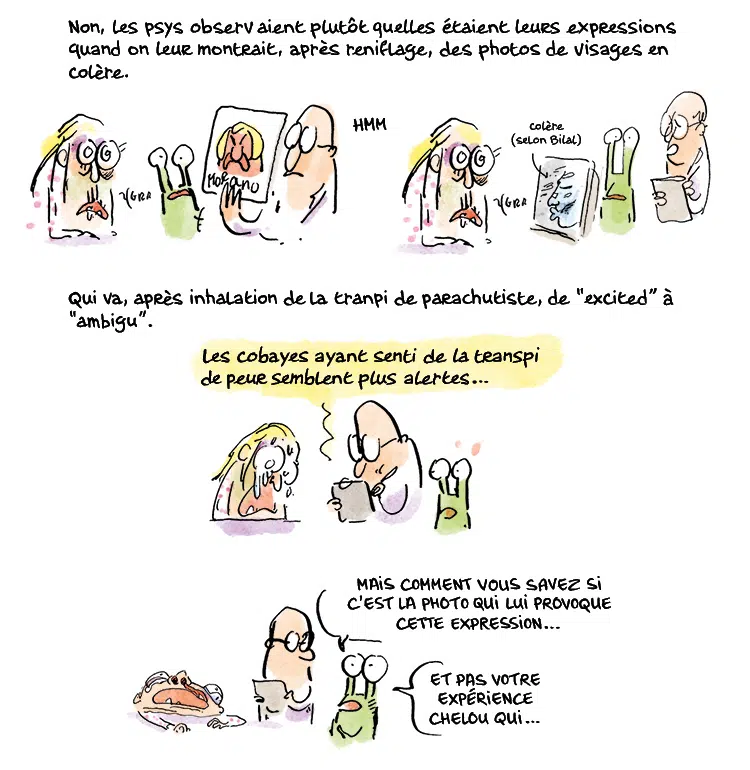 Non, les psys observaient plutôt quelles étaient leurs expressions
quand on leur montrait, après reniflage, des photos de visages en
colère.
MORANO
HMM
GRA
colère
(selon Bilal)
GRA
Qui va, après inhalation de la tranpi de parachutiste, de "excited" à
"ambigu".
Les cobayes ayant senti de la transpi
de peur semblent plus alertes...
MAIS COMMENT VOUS SAVEZ SI
C'EST LA PHOTO QUI LUI PROVOQUE
CETTE EXPRESSION...
ET PAS VOTRE
EXPÉRIENCE
CHELOU QUI...